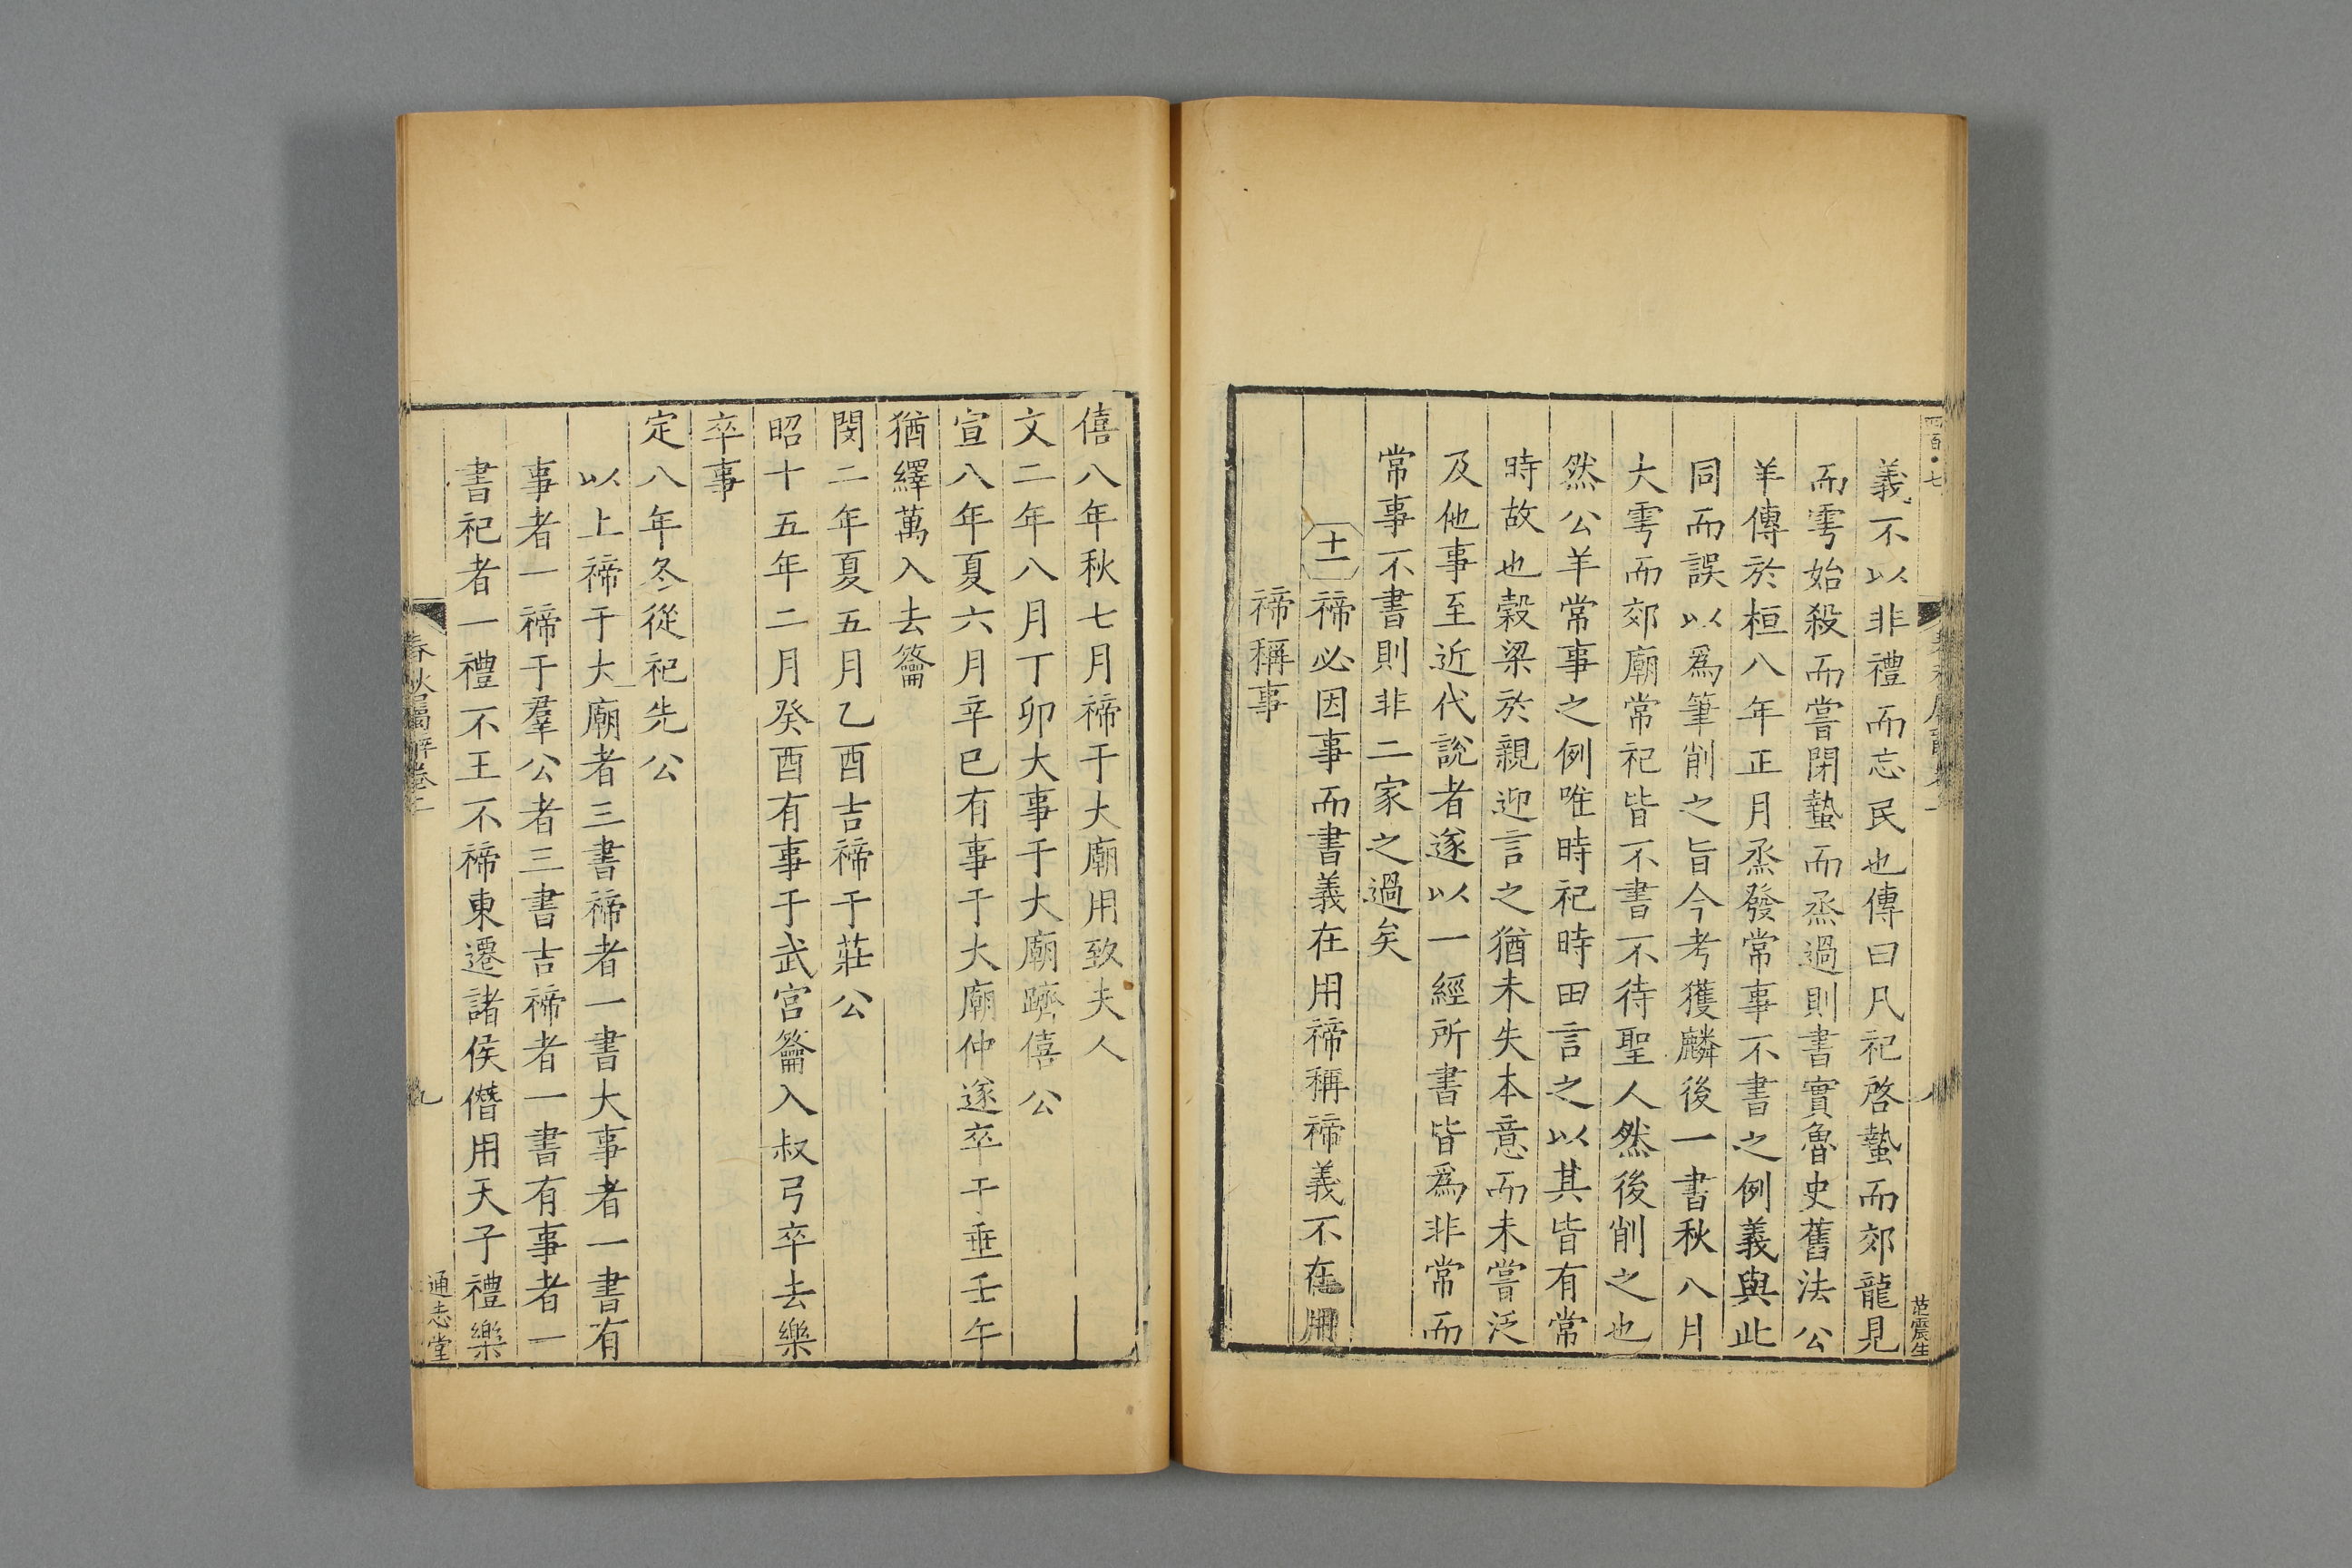 義不以非禮而忘民也傳曰凡祀啓蟄而郊龍見
而雩始殺而嘗閉蟄而烝過則書實魯史舊法公
羊傳於桓八年正月烝發常事不書之例義與此
同而誤以爲筆削之旨今考獲麟後一書秋八月
大雩而郊廟常祀皆不書不待聖人然後削之也
然公羊常事之例唯時祀時田言之以其皆有常
時故也穀梁於親迎言之猶未失本意而未嘗泛
及他事至近代說者遂以一經所書皆爲非常而
常事不書則非二家之過矣
十一禘必因事而書義在用禘稱禘義不在用
禘稱事
范震生
僖八年秋七月禘于大廟用致夫人
文二年八月丁卯大事于大廟躋僖公
宣八年夏六月辛巳有事于大廟仲遂卒于垂壬午
猶繹萬入去籥
閔二年夏五月乙酉吉禘于莊公
昭十五年二月癸酉有事于武宮籥入叔弓卒去樂
卒事
定八年冬從祀先公
以上禘于大廟者三書禘者一書大事者一書有
事者一禘于羣公者三書吉禘者一書有事者一
書祀者一禮不王不禘東遷諸侯僭用天子禮樂
春秋屬辭卷二
九
通志堂